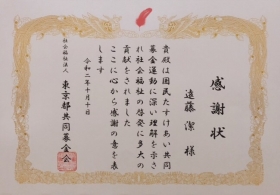 感謝状
遠藤 潔 様
貴殿は国民たすけあい共同
募金運動に深い理解を示さ
れ社会福祉の啓発に多大の
貢献をされました
ここに心から感謝の意を表
します
令和二年十月十日
社会福祉法人
東京都共同募金会